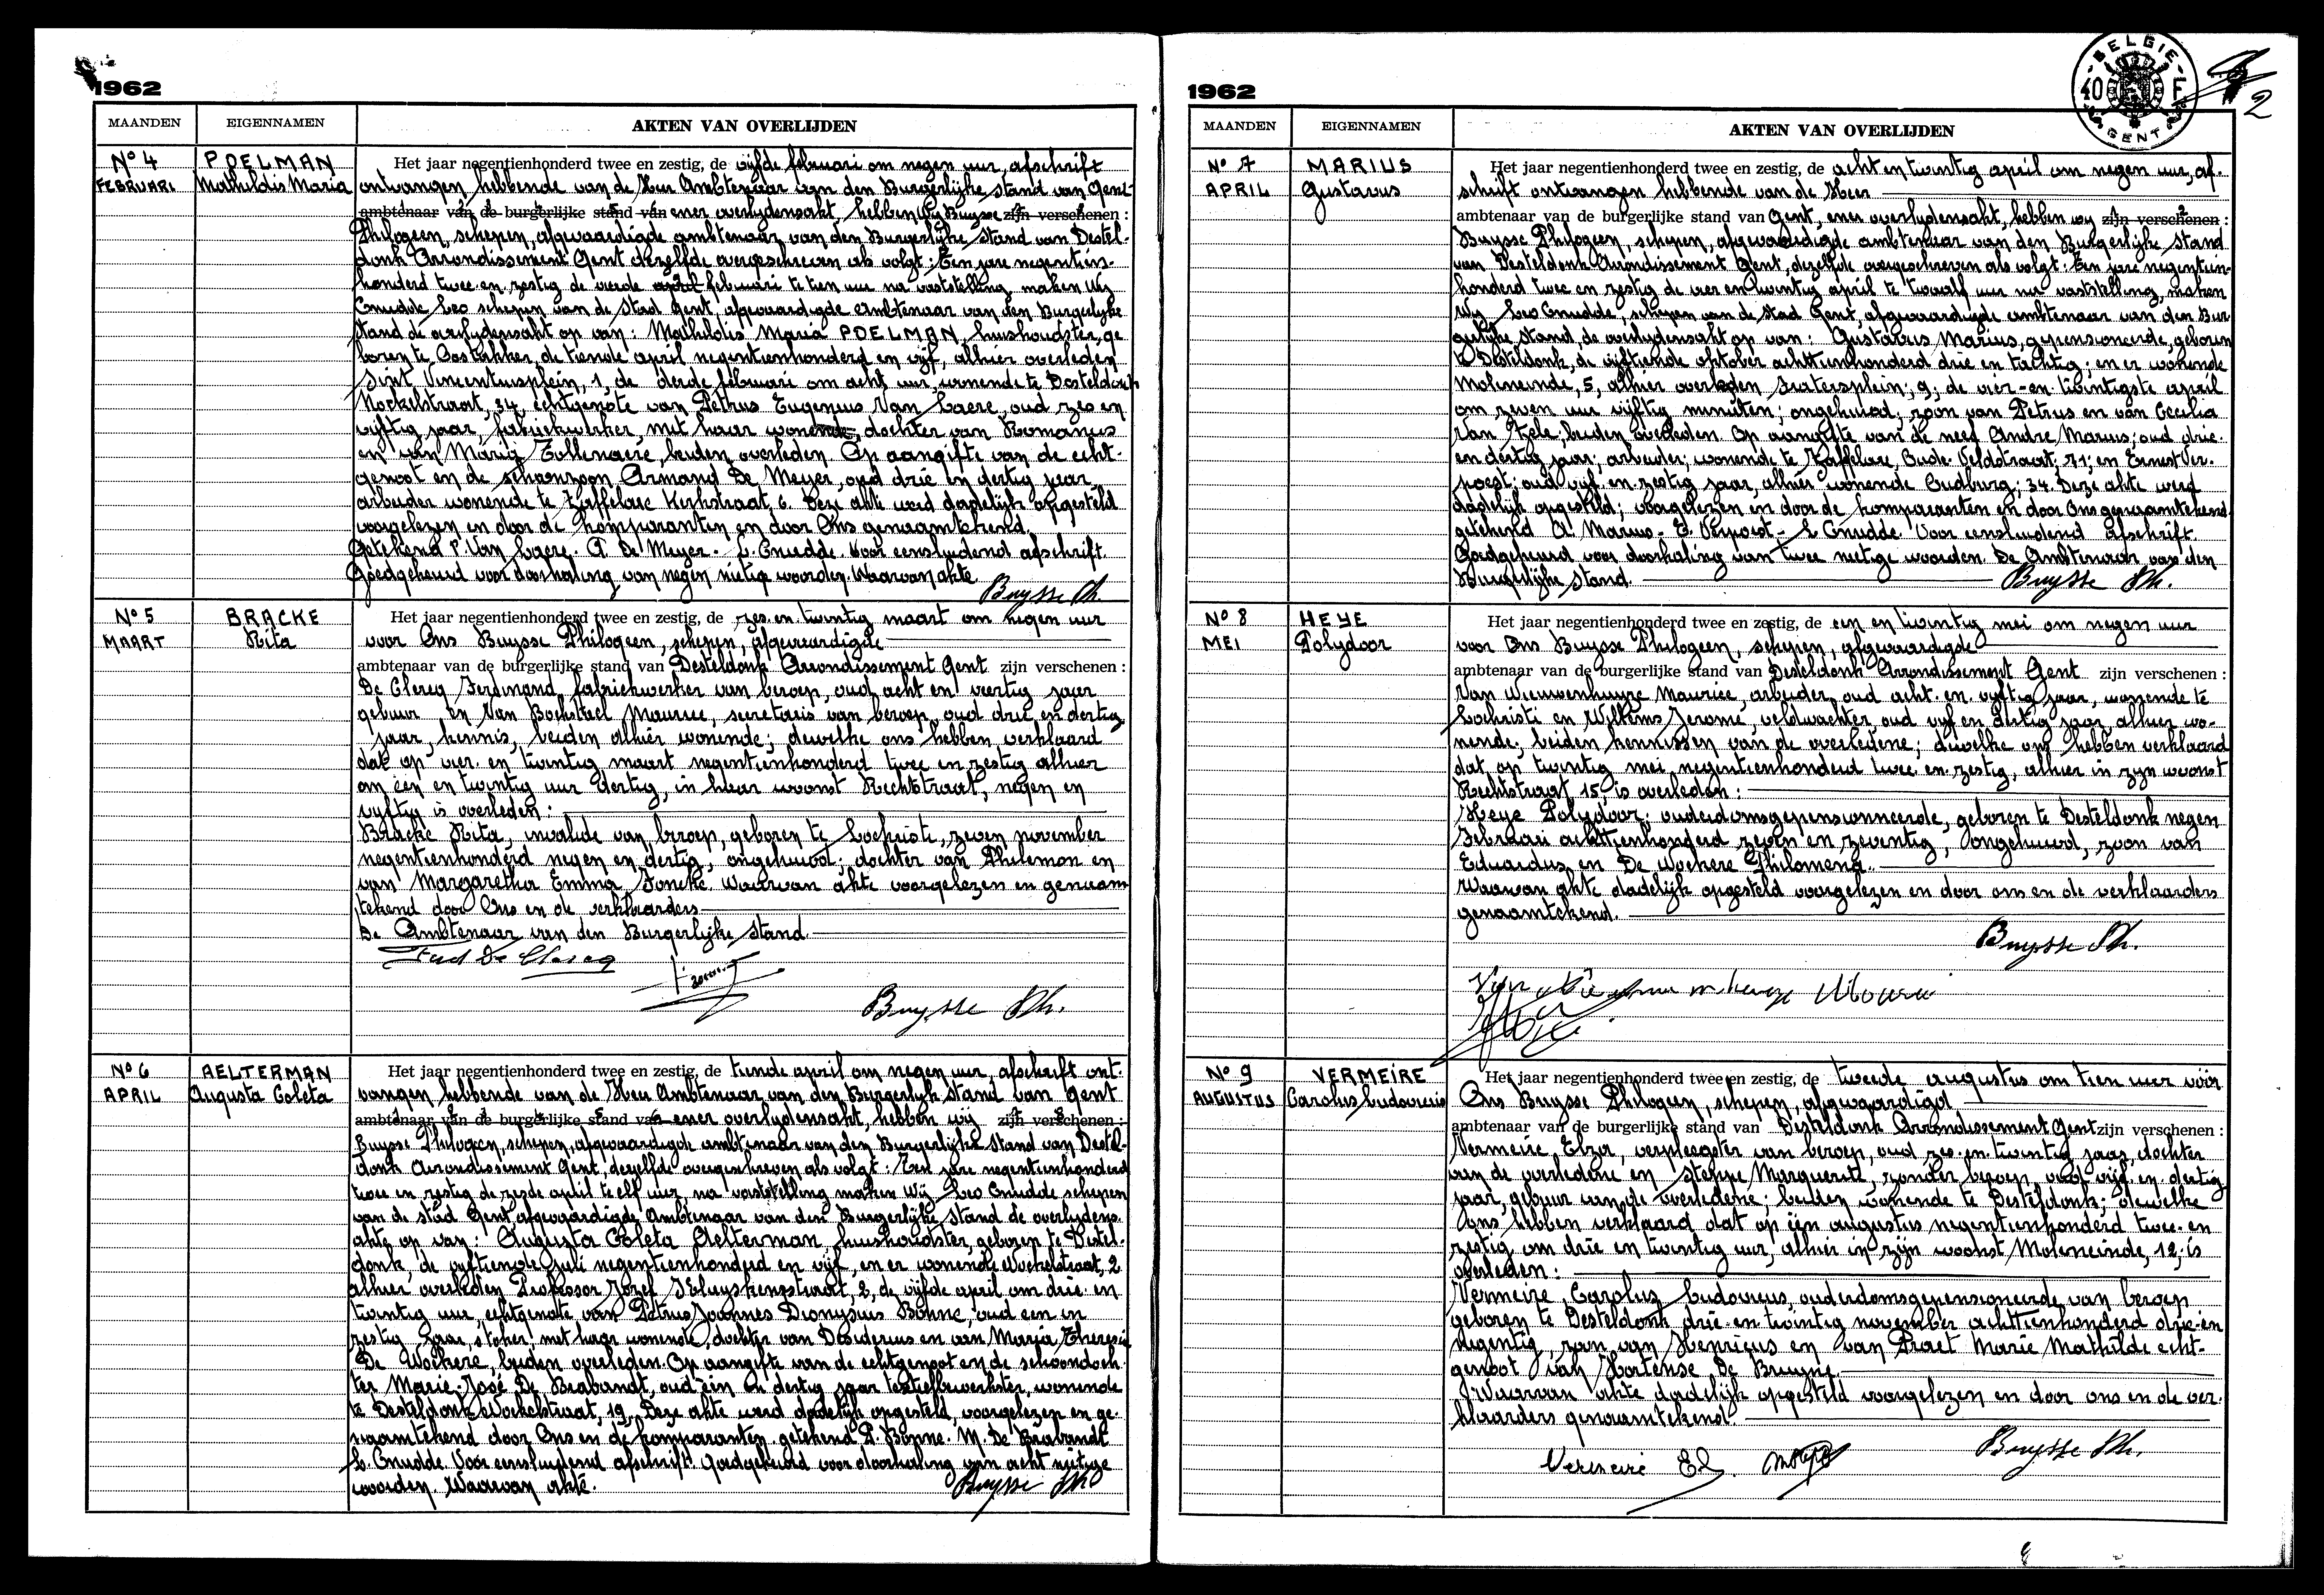 1962
MAANDEN EIGENNAMEN AKTEN VAN OVERLIJDEN
Nº 4 POELMAN Het jaar negentienhonderd twee en zestig, de vijfde februari om negen uur, afschrift
FEBRUARI Mathildis Maria ontvangen hebbende van de Heer Ambtenaar van den Burgerlijke stand van Gent
ambtenaar van de burgerlijke stand van eener overlydensakt, hebben Wij Buysse zijn verschenen :
Philogeen, schepen, afgevaardigde ambtenaar van den Burgerlijke stand van Destel-
donk Arrondissement Gent dezelfde overgeschreven als volgt: Een jare negentien-
honderd twee en zestig de vierde februari te tien uur na vaststelling, maken Wij
Cnudde Leo schepen van de stad Gent, afgevaardigde ambtenaar van den Burgerlyke
stand de overlydensakt op van: Mathildis Maria POELMAN, huishoudster, ge
boren te Oostakker, de tiende april negentienhonderd en vijf, alhier overleden
Sint Vincentiusplein, 1, de derde februari om acht uur, wonende te Desteldonk
34, echtgenote van Petrus Eugenius Van Laere, oud zes en
vijftig jaar, fabriekwerker, met haar wonende, dochter van Romanus
en van Marij Tollenaere, beiden overleden. Op aangifte van de echt-
genoot en de schoonzoon Armand De Meyer, oud drie en dertig jaar
arbeider wonende te Zaffelare Kerkstraat, 6. Deze akte werd dadelijk opgesteld
voorgelezen en door de komparanten en door Ons genaamtekend.
Getekend P. Van Laere. A De Meyer. L. Cnudde. Voor eensluidend afschrift.
Goedgekeurd voor doorhaling van negen nietige woorden. Waarvan akte
Buysse Ph.
Nº 5 BRACKE Het jaar negentienhonderd twee en zestig, de zes en twintig maart om negen uur
MAART Rita voor Ons Buysse Philogeen, schepen, afgevaardigde
ambtenaar van de burgerlijke stand van Desteldonk Arrondissement Gent zijn verschenen :
De Clercq Ferdinand, fabriekwerker van beroep, oud acht en veertig jaar
gebuur en Van Bockstael Maurice, secretaris van beroep, oud drie en dertig
jaar, kennis, beiden alhier wonende; dewelke ons hebben verklaard
dat op vier en twintig maart negentienhonderd twee en zestig alhier
om een en twintig uur dertig, in haar woonst Rechtstraat, negen en
vyftig is overleden:
Bracke Rita, invalide van beroep, geboren te Lochristi, zeven november
negentienhonderd negen en dertig, ongehuwd, dochter van Philemon en
van Margaretha Emma Joncke. Waarvan akte voorgelezen en genaam
tekend door Ons en de verklaarders
De Ambtenaar van den Burgerlijke stand.
Ferd De Clercq
Buysse Ph.
Nº 6 AELTERMAN Het jaar negentienhonderd twee en zestig, de tiende april om negen uur, afschrift ont-
APRIL Augusta Coleta vangen hebbende van de Heer Ambtenaar van den Burgerlijk stand van Gent
ambtenaar van de burgerlijke stand van eener overlydensakt, hebben wij zijn verschenen :
Buysse Philogeen, schepen, afgevaardigde ambtenaar van den Burgerlijke stand van Destel-
donk Arrondissement Gent, dezelfde overgeschreven als volgt: Een jare negentienhonderd
twee en zestig de zesde april te elf uur, na vaststelling maken Wij Leo Cnudde schepen
van de stad Gent afgevaardigde ambtenaar van den Burgerlijke stand de overlydens
akte op van: Augusta Coleta Aelterman, huishoudster, geboren te Destel-
donk, de vyftiende juli negentienhonderd en vijf, en er wonende 2
alhier overleden Professor Jozef Kluyskensstraat, 2, de vijfde april om drie en
twintig uur, echtgenote van Petrus Joannes Dionysius Bonne, oud een en
zestig jaar, stoker, met haar wonende, dochter van Desiderius en van Maria Theresia
De Wockere, beiden overleden. Op aangifte van de echtgenoot en de schoondoch-
ter Marie-José De Brabandt, oud een en dertig jaar textielbewerkster, wonende
te Desteldonk 19. Deze akte werd dadelijk opgesteld, voorgelezen en ge-
naamtekend door Ons en de komparanten. getekend P. Bonne. M. De Brabandt
L. Cnudde. Voor eensluidend afschrift. Goedgekeurd voor doorhaling van acht nietige
woorden. Waarvan akte.
Buysse Ph
1962
BELGIE
40 F
GENT
2
MAANDEN EIGENNAMEN AKTEN VAN OVERLIJDEN
Nº 7 MARIUS Het jaar negentienhonderd twee en zestig, de acht en twintig april om negen uur, af-
APRIL Gustavus schrift ontvangen hebbende van de Heer
ambtenaar van de burgerlijke stand van Gent, ener overlydensakt, hebben wy zijn verschenen :
Buysse Philogeen, schepen, afgevaardigde ambtenaar van den Burgerlijke stand
van Desteldonk Arrondissement Gent, dezelfde overgeschreven als volgt: Een jare negentien-
honderd twee en zestig de vier en twintig april te twaalf uur na vaststelling, maken
Wy Leo Cnudde, schepen van de stad Gent, afgevaardigde ambtenaar van den Bur
gerlijke stand, de overlydensakt op van: Gustavus Marius, gepensioneerde, geboren
te Desteldonk, de vijftiende oktober achttienhonderd drie en tachtig, en er wonende
Moleneinde, 5, alhier overleden 9, de vier-en twintigste april
om zeven uur vijftig minuten; ongehuwd; zoon van Petrus en van Cecilia
Van Hele, beiden overleden. Op aangifte van de neef Andre Marius; oud drie
en dertig jaar; arbeider; wonende te Zaffelare, Oude Veldstraat; 71; en Ernest Ver-
poest; oud vijf en zestig jaar, alhier wonende Oudburg; 34. Deze akte werd
dadelijk opgesteld; voorgelezen en door de komparanten en door Ons genaamtekend.
getekend A Marius - E Verpoest - L Cnudde. Voor eensluidend afschrift
Goedgekeurd voor doorhaling van twee nietige woorden. De Ambtenaar van den
Burgerlijke stand.
Buysse Ph.
Nº 8 HEYE Het jaar negentienhonderd twee en zestig, de een en twintig mei om negen uur
MEI Polydoor voor Ons Buysse Philogeen, schepen, afgevaardigde
ambtenaar van de burgerlijke stand van Desteldonk Arrondissement Gent zijn verschenen :
Van Nieuwenhuyze Maurice, arbeider, oud acht en vyftig jaar, wonende te
Lochristi en Willems Jerome veldwachter, oud vyf en dertig jaar alhier wo-
nende; beiden kennissen van de overledene; dewelke ons hebben verklaard
dat op twintig mei negentienhonderd twee en zestig, alhier in zyn woonst
Rechtstraat 15, is overleden:
Heye Polydoor, ouderdomsgepensionneerde, geboren te Desteldonk negen
Februari achttienhonderd zeven en zeventig, ongehuwd, zoon van
Eduardus en De Wockere Philomena.
Waarvan akte dadelijk opgesteld voorgelezen en door ons en de verklaarders
genaamtekend.
Buysse Ph.
Nº 9 VERMEIRE Het jaar negentienhonderd twee en zestig, de tweede augustus om tien uur vóór
AUGUSTUS Carolus Ludovicus Ons Buysse Philogeen, schepen, afgevaardigd
ambtenaar van de burgerlijke stand van Desteldonk Arrondissement Gent zijn verschenen :
Vermeire Elza, verpleegster van beroep, oud zes en twintig jaar, dochter
van de overledene en Steppe Marguerite, zonder beroep, oud vijf en dertig
jaar, gebuur van de overledene; beiden wonende te Desteldonk; dewelke
ons hebben verklaard dat op één augustus negentienhonderd twee en
zestig om drie en twintig uur, alhier in zijn woonst Moleneinde, 12, is
overleden:
Vermeire Carolus Ludovicus, ouderdomsgepensioneerde van beroep
geboren te Desteldonk drie en twintig november achttienhonderd drie en
negentig, zoon van Henricus en van Praet Marie Mathilde echt-
genoot van Hortense De Bruyne.
Waarvan akte dadelijk opgesteld voorgelezen en door ons en de ver-
klaarders genaamtekend
Buysse Ph.
Vermeire El.